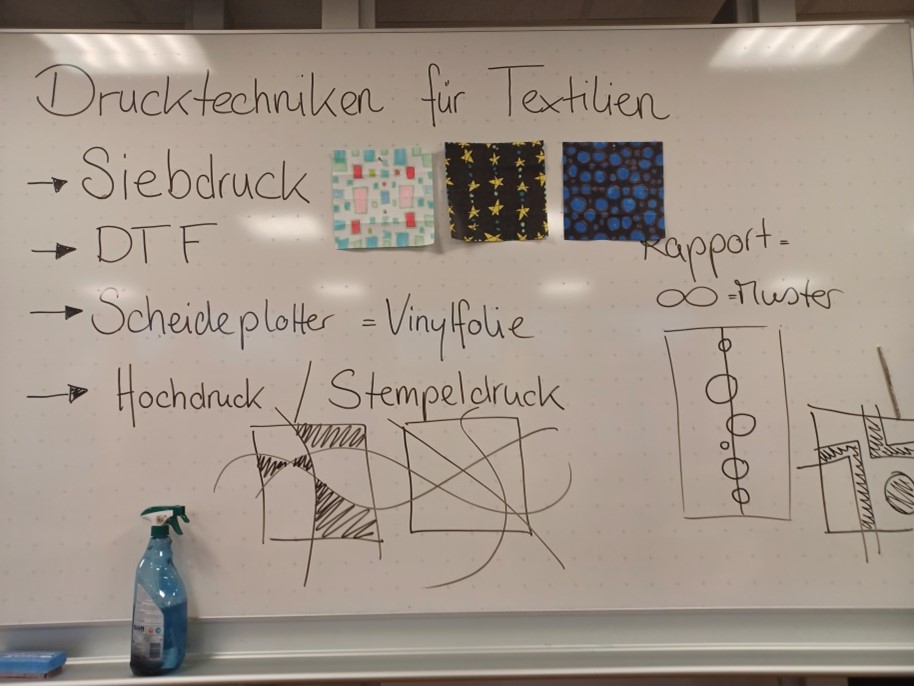 Drucktechniken für Textilien
→ Siebdruck
→ DTF
→ Scheideplotter = Vinylfolie
→ Hochdruck / Stempeldruck
Rapport =
∞ = Muster